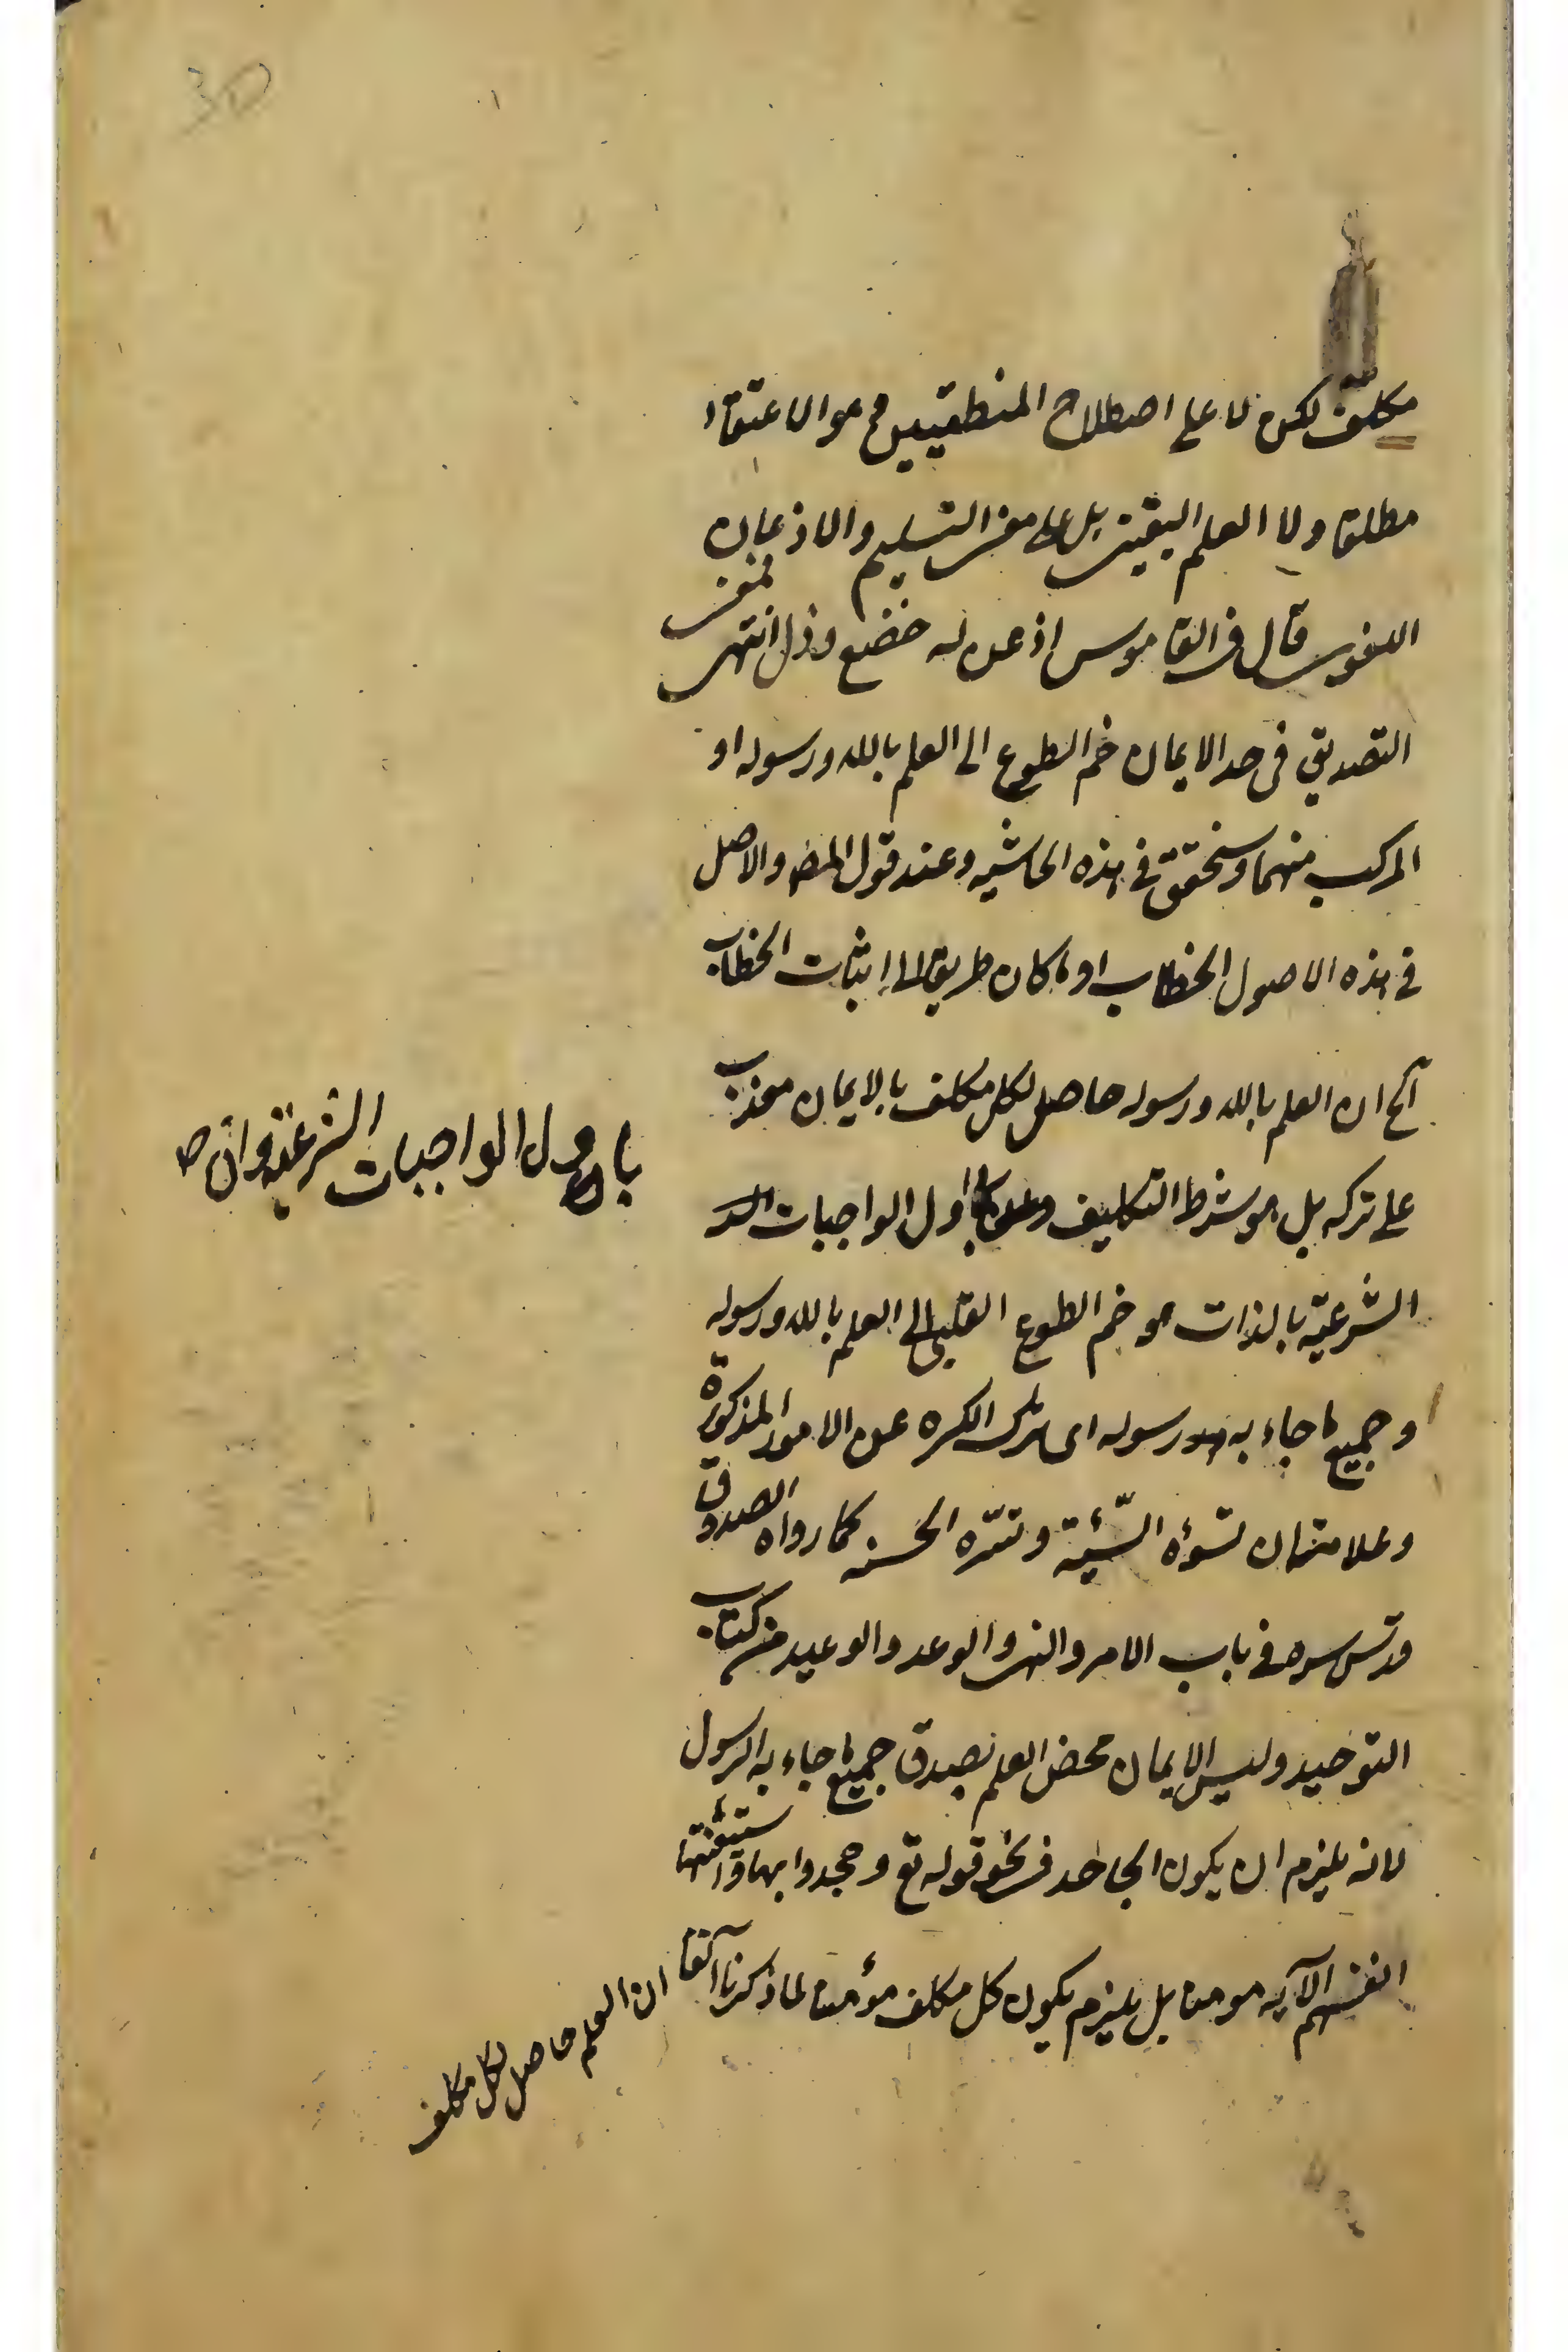 مكلف لكن لا على اصطلاح المنطقيين فهو الاعتقاد
مطلقا ولا العلم اليقينى بل على معنى التسليم والاذعان
اللغوى قال فى القاموس اذعن له خضع وذل انتهى فمعنى
التصديق فى حد الايمان ضم الطوع الى العلم بالله ورسوله او
المركب منهما وسنحقق فى هذه الحاشيه وعند قول المص والاصل
فى هذه الاصول الخطاب او ما كان طريقا الى اثبات الخطاب
الخ ان العلم بالله ورسوله حاصل لكل مكلف بالايمان معذب
على تركه بل هو شرط التكليف اول الواجبات
بان اول الواجبات الشرعية وان
الشرعية بالذات هو ضم الطوع القلبى الى العلم بالله ورسوله
وجميع ما جاء به رسوله اى ترك الكره عن الامور المذكورة
وعلامته ان تسوءه السّيئة وتسرّه الحسنه كما رواه الصدوق
قدس سره فى باب الامر والنهى والوعد والوعيد من كتاب
التوحيد وليس الايمان محض العلم بصدق جميع ما جاء به الرسول
لانه يلزم ان يكون الجاحد فى نحو قوله تع وجحدوا بها واستيقنتها
انفسهم الآيه مومنا بل يلزم يكون كل مكلف مؤمنا لما ذكرنا آنفا
ان العلم حاصل لكل مكلف